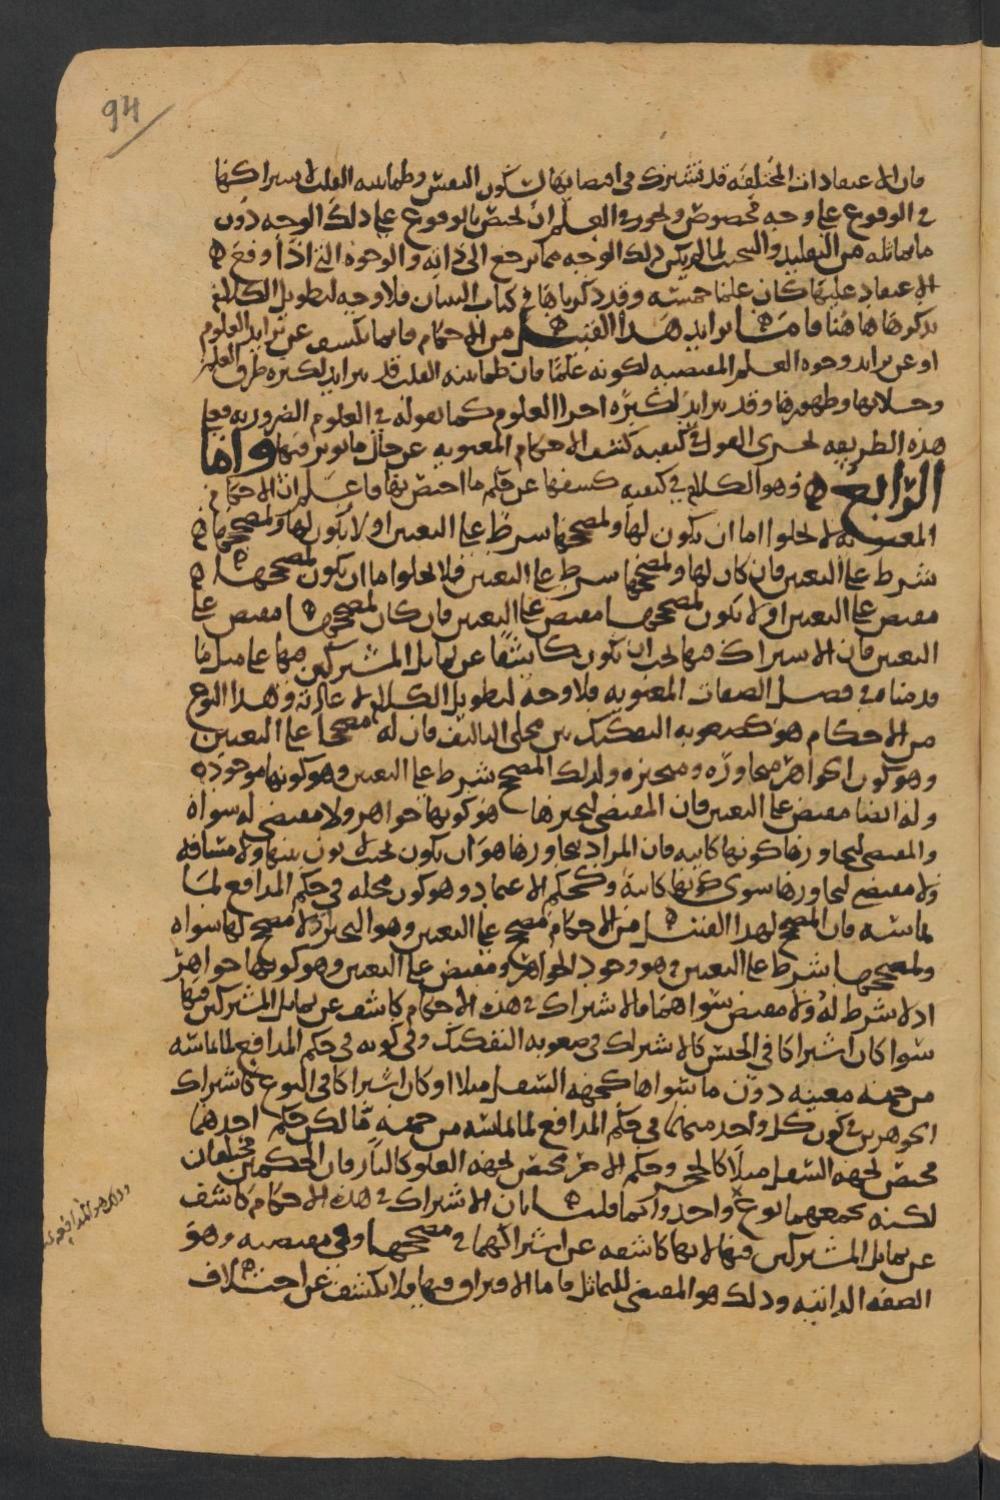 94
فان الاعتقادات المختلفة قد تشترك في اقتضائها لسكون النفس وطمانينة القلب لاشتراكها
في الوقوع على وجه مخصوص ولحوز في العلم ان لحتص بالوقوع على ذلك الوجه دون
ما يماثله من التقليد والتبخيت لما لم يكن ذلك الوجه مما يرجع الى ذاته والوجوه التي اذا وقع
الاعتقاد عليها كان علما خمسة وقد ذكرناها في كتاب البيان فلا وجه لتطويل الكلام
بذكرها هاهنا فاما تزايد هذا القبيل من الاحكام فانما يكشف عن تزايد العلوم
او عن تزايد وجوه العلم المقتضية لكونه علما فان طمانينة القلب قد تتزايد لكثرة طرق العلم
وجلائها وظهورها وقد تتزايد لكثرة اجزا العلوم كما نقوله في العلوم الضرورية فعلى
هذه الطريقة يجرى القول في كيفية كشف الاحكام المعنوية عن حال ما يوثر فيها واما
الرابع وهو الكلام في كيفية كشفها عن حكم ما اختص بها فاعلم ان الاحكام
المعنوية لا تخلوا اما ان يكون لها ولمصححها شرط على التعيين او لا يكون لها ولمصححها
شرط على التعيين فان كان لها ولمصححها شرط على التعيين فلا يخلوا اما ان يكون لمصححها
مقتض على التعيين او لا يكون لمصححها مقتض على التعيين فان كان لمصححها مقتض على
التعيين فان الاشتراك فيها يجب ان يكون كاشفا عن تماثل المشتركين فيها على مثل ما
قدمنا في فصل الصفات المعنوية فلا وجه لتطويل الكلام لاعادته وهذا النوع
من الاحكام هو كصعوبة التفكيك بين محلى التاليف فان له مصححا على التعيين
وهو كون الجواهر متجاورة ومتحيزة ولذلك المصحح شرط على التعيين وهو كونها موجودة
وله ايضا مقتض على التعيين فان المقتضي لتحيزها هو كونها جواهر ولا مقتضى له سواه
والمقتضى لتجاورها كونها كائنة فان المراد بتجاورها هو ان يكون بحيث لا بون بينها ولا مسافة
ولا مقتضي لتجاورها سوى كونها كائنة وكحكم الاعتماد وهو كون محله في حكم المدافع لما
يماسه فان المصحح لهذا القبيل من الاحكام مصحح على التعيين وهو التحيز ولا مصحح لها سواه
ولمصححها شرط على التعيين وهو وجود الجواهر ومقتض على التعيين وهو كونها جواهر
اذ لا شرط له ولا مقتض سواهما فالاشتراك في هذه الاحكام كاشف عن تماثل المشتركين فيها
سوا كان اشتراكا في الجنس كالاشتراك في صعوبة التفكيك وفي كونه في حكم المدافع لما يماسه
من جهة معينة دون ما سواها كجهة السفل مثلا او كان اشتراكا في النوع كاشتراك
الجوهرين في كون كل واحد منهما في حكم المدافع لما يماسه من جهة ما لكن حكم احدهما
مختص بجهة السفل مثلا كالحجر وحكم الاخر مختص بجهة العلو كالنار فان الحكمين مختلفان
لكنه يجمعهما نوع واحد وانما قلنا بان الاشتراك في هذه الاحكام كاشف
عن تماثل المشتركين فيها لانها كاشفة عن اشتراكهما في مصححها وفي مقتضيه وهو
الصفة الذاتية وذلك هو المقتضي للتماثل فاما الافتراق فيها فلا يكشف عن اختلاف